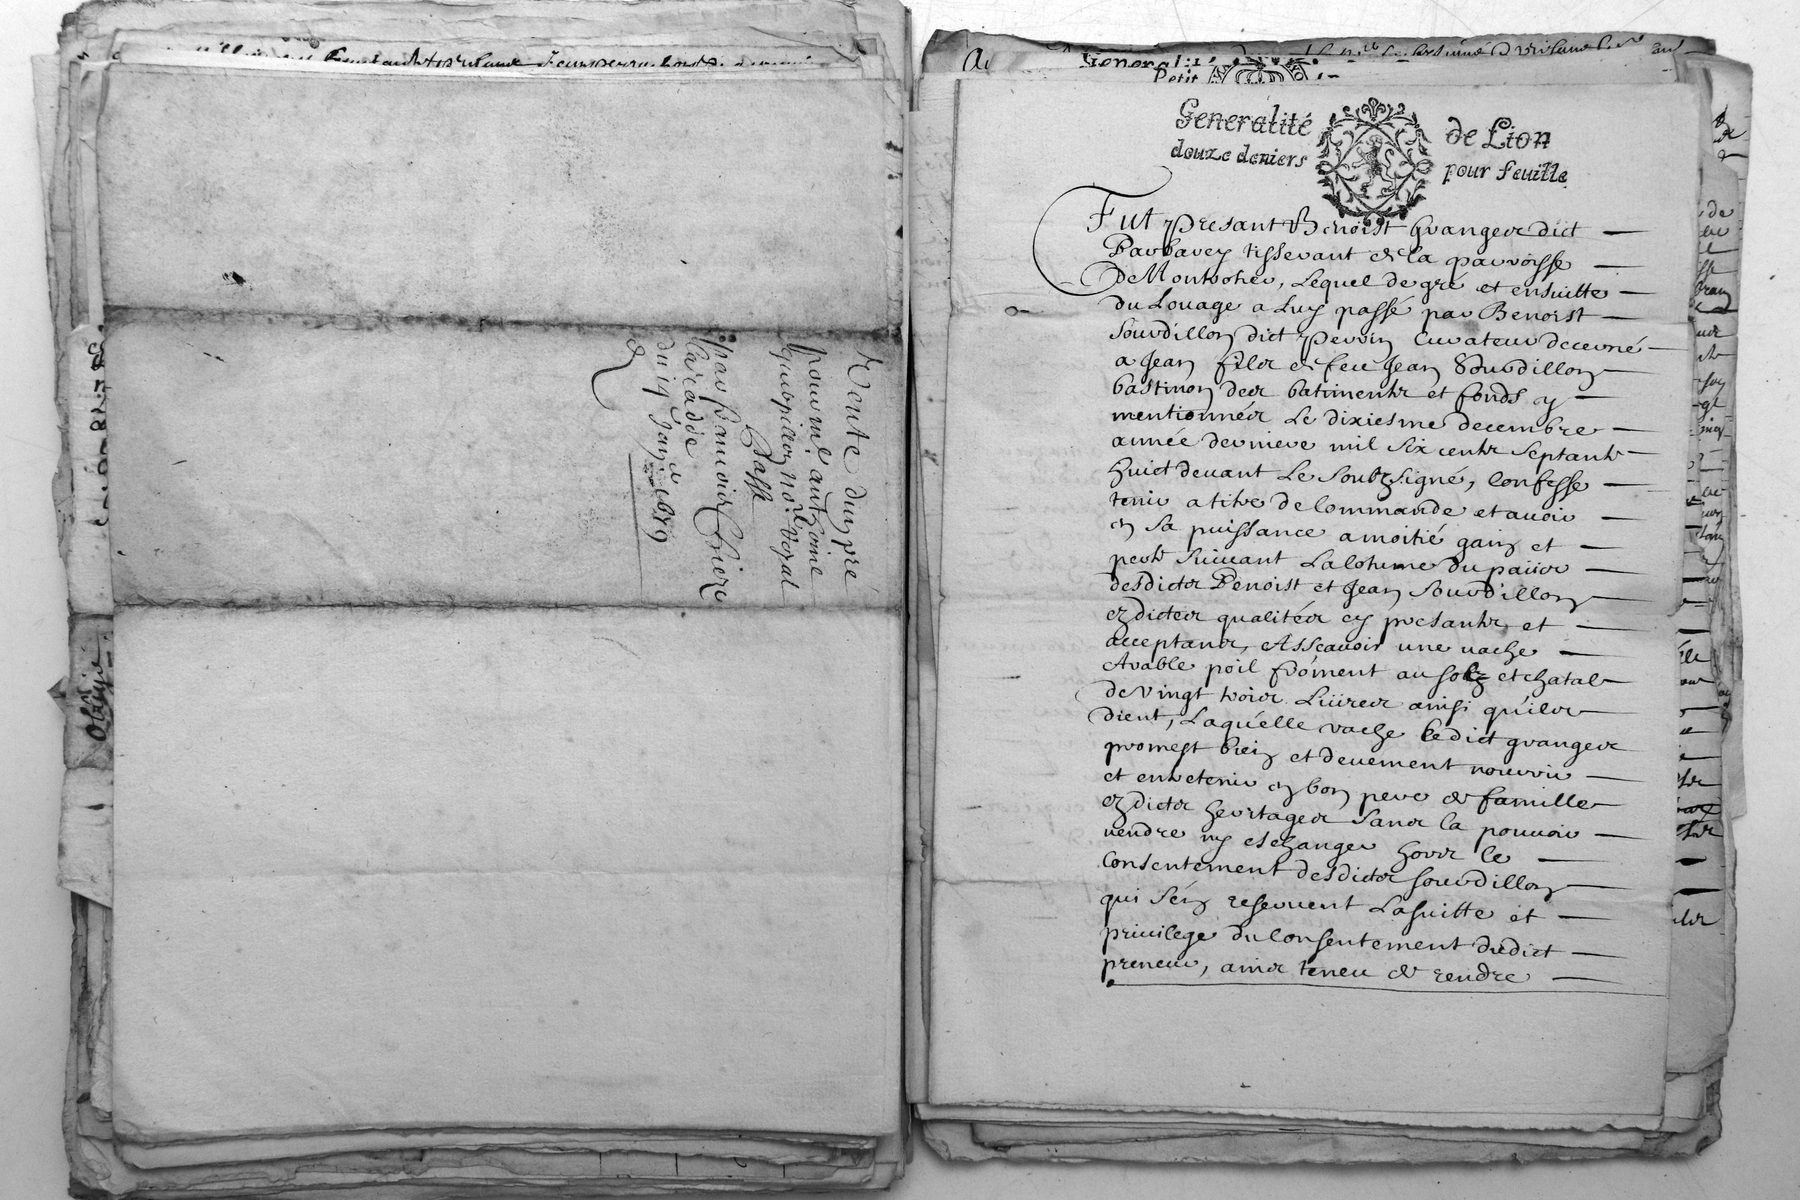 Vente dun pré
pour me anthoine
Guespillon no.re Royal
Basse
par francois
la cadde
du 14 Jan.er 1679
Obligé
Generalité de Lion
douze deniers pour feuille
Petit
Fut presant Benoist Grangeor dict
Parbarey tisserant de la parroisse
De Montrotier, Lequel de gré et ensuitte
du Louage a Luy passé par Benoist
Sourdillon dict perrin Curateur decerné
a Jean filz de feu Jean Sourdillon
bastinon des batimentz et fonds y
mentionnés Le dixiesme decembre
année derniere mil six centz septante
huict devant Le Soubzsigné, Confesse
tenir a titre de Commande et avoir
en Sa puissance a moitié gain et
perte Suivant La Cotume du païs
desdicts Benoist et Jean Sourdillon
ezdictes qualités cy presantz et
acceptans, Asscavoir une vache
Arable poil froment au solz et chatal
de vingt trois Livres ainsi qu'ils
dient, Laquelle vache Ledict grangeor
promest bien et deuement nourrir
et entretenir en bon pere de famille
ezdicts heritages Sans la pouvoir
vendre ny eschanger hors le
consentement desdicts Sourdillon
qui S'en reservent La suitte et
privilege du Consentement dudict
preneur, ains tenu de rendre